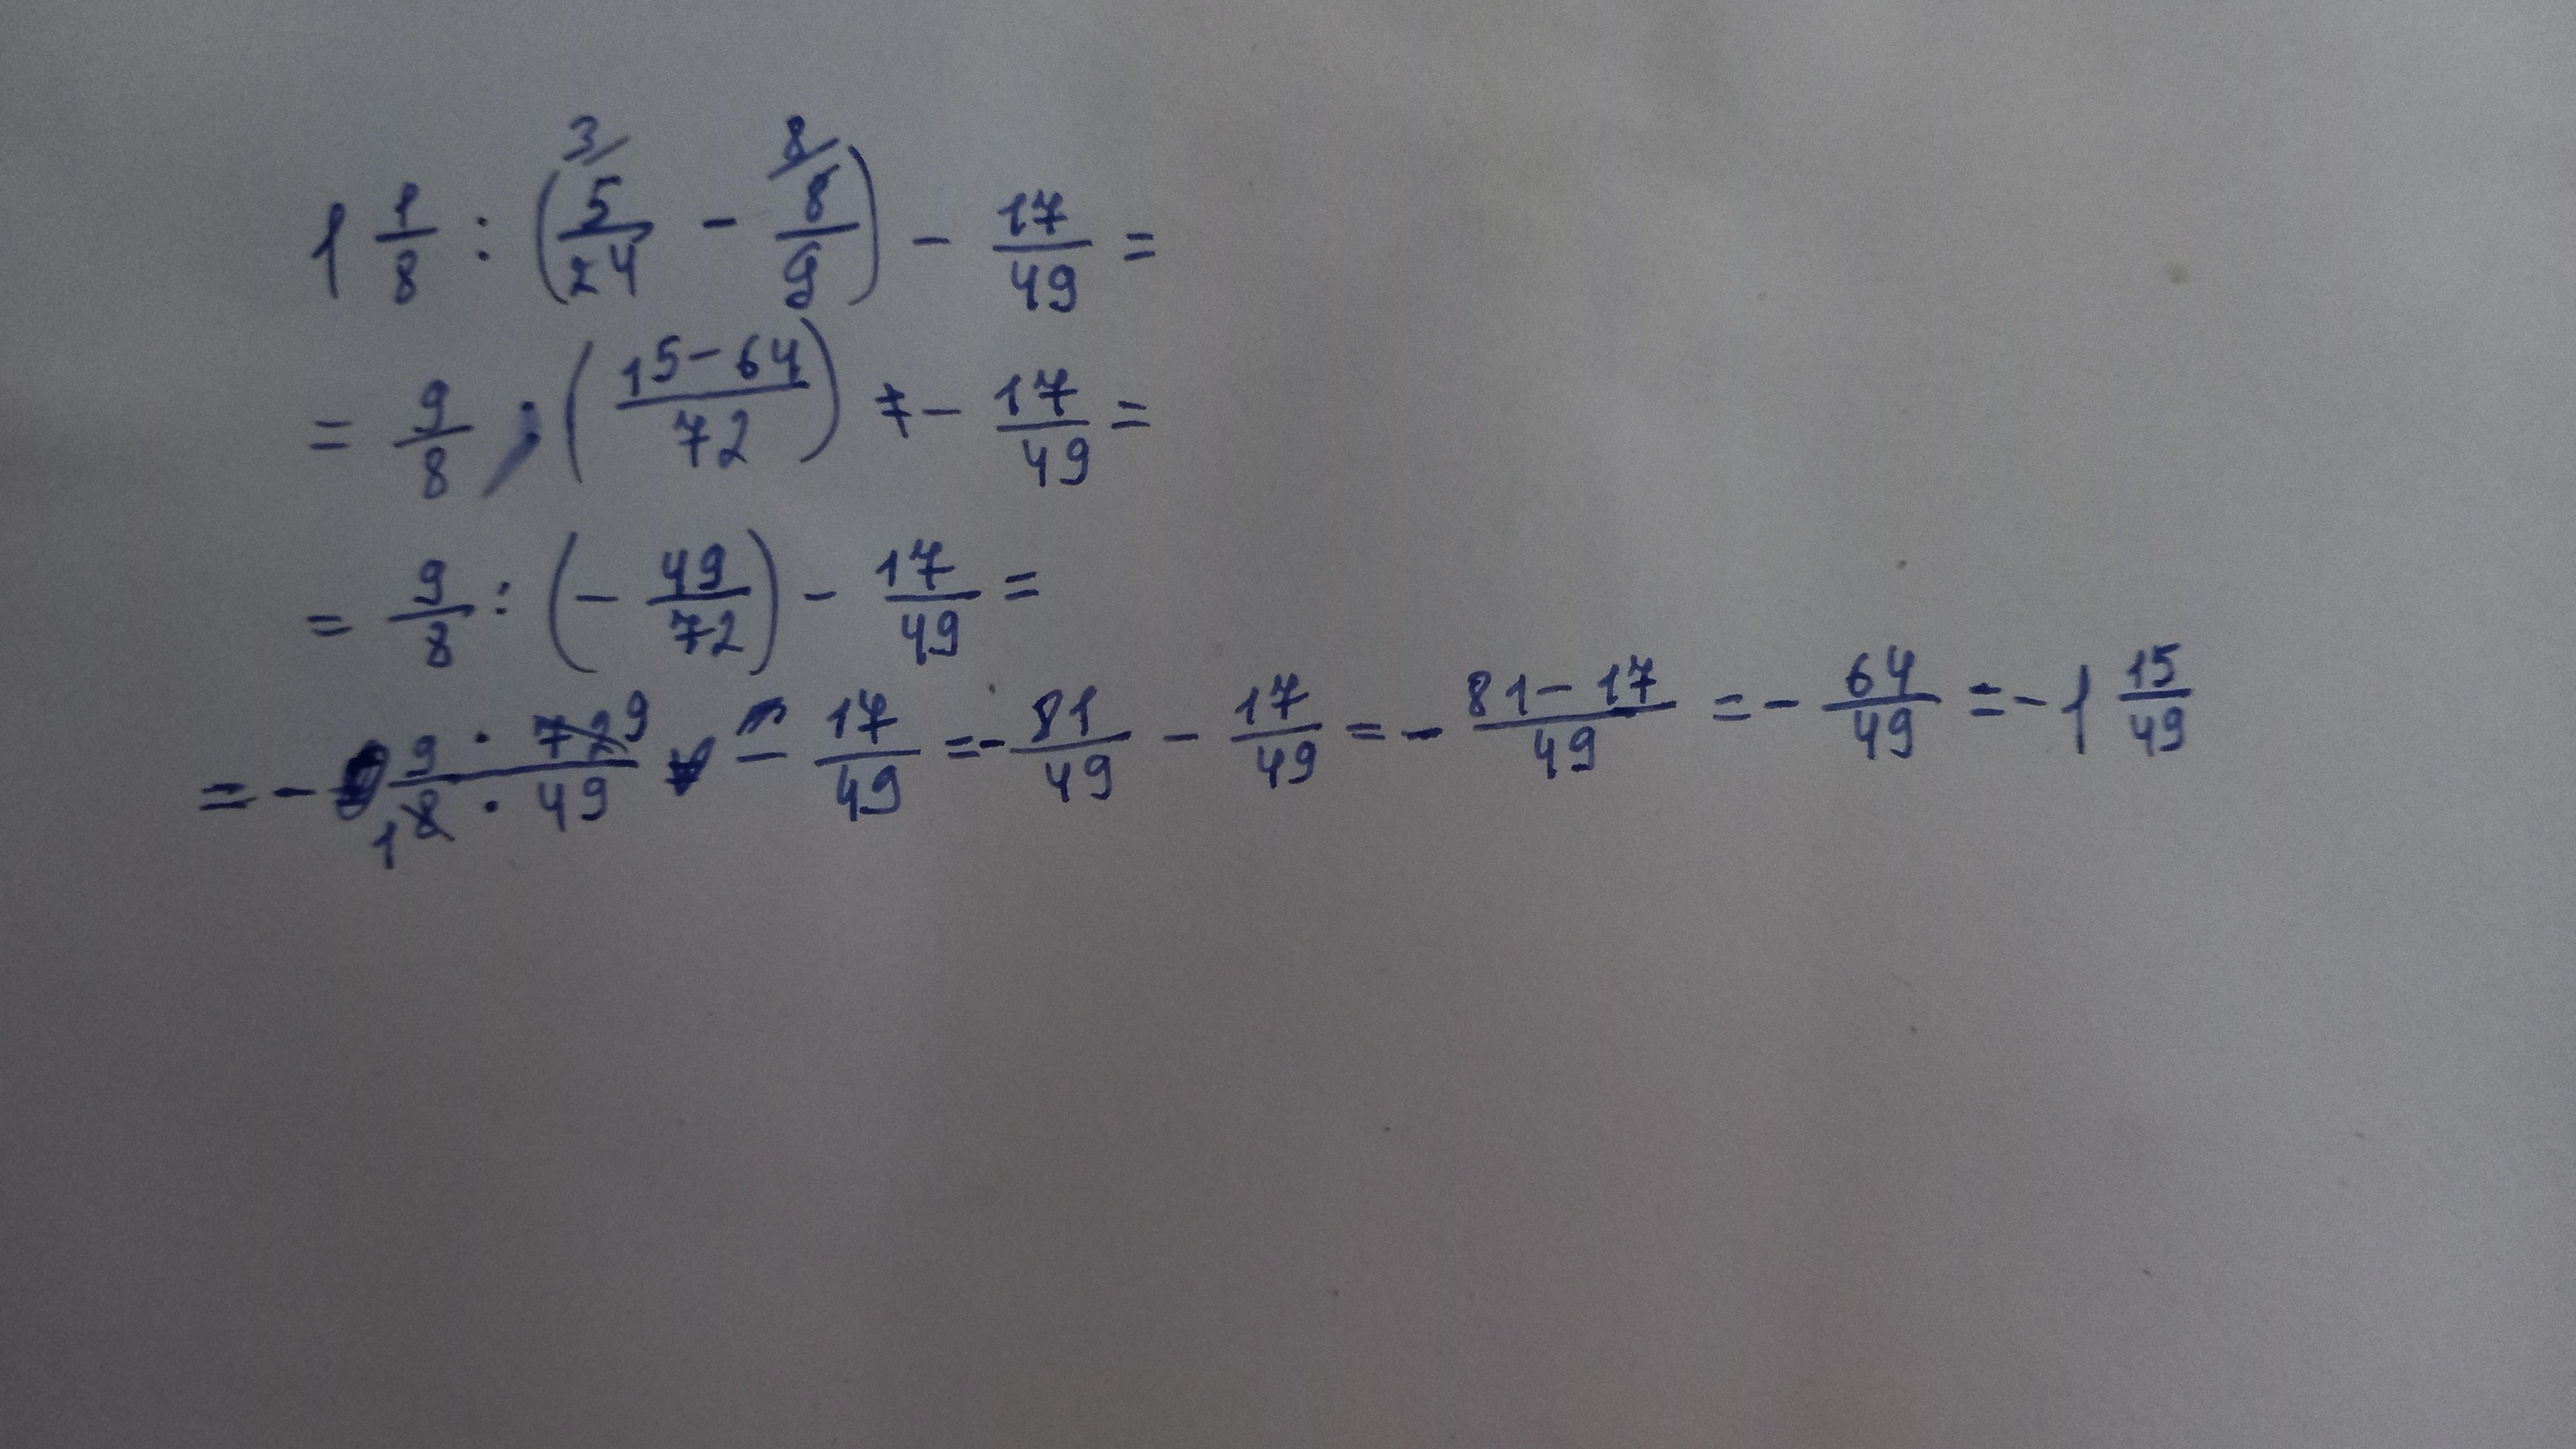 1 1/8 : (5/24 3/ - 8/9 8/) - 17/49 =
= 9/8 : (15-64/72) - 17/49 =
= 9/8 : (- 49/72) - 17/49 =
= - 9 · 72 9/1 8 · 49 - 17/49 = - 81/49 - 17/49 = - 81-17/49 = - 64/49 = - 1 15/49